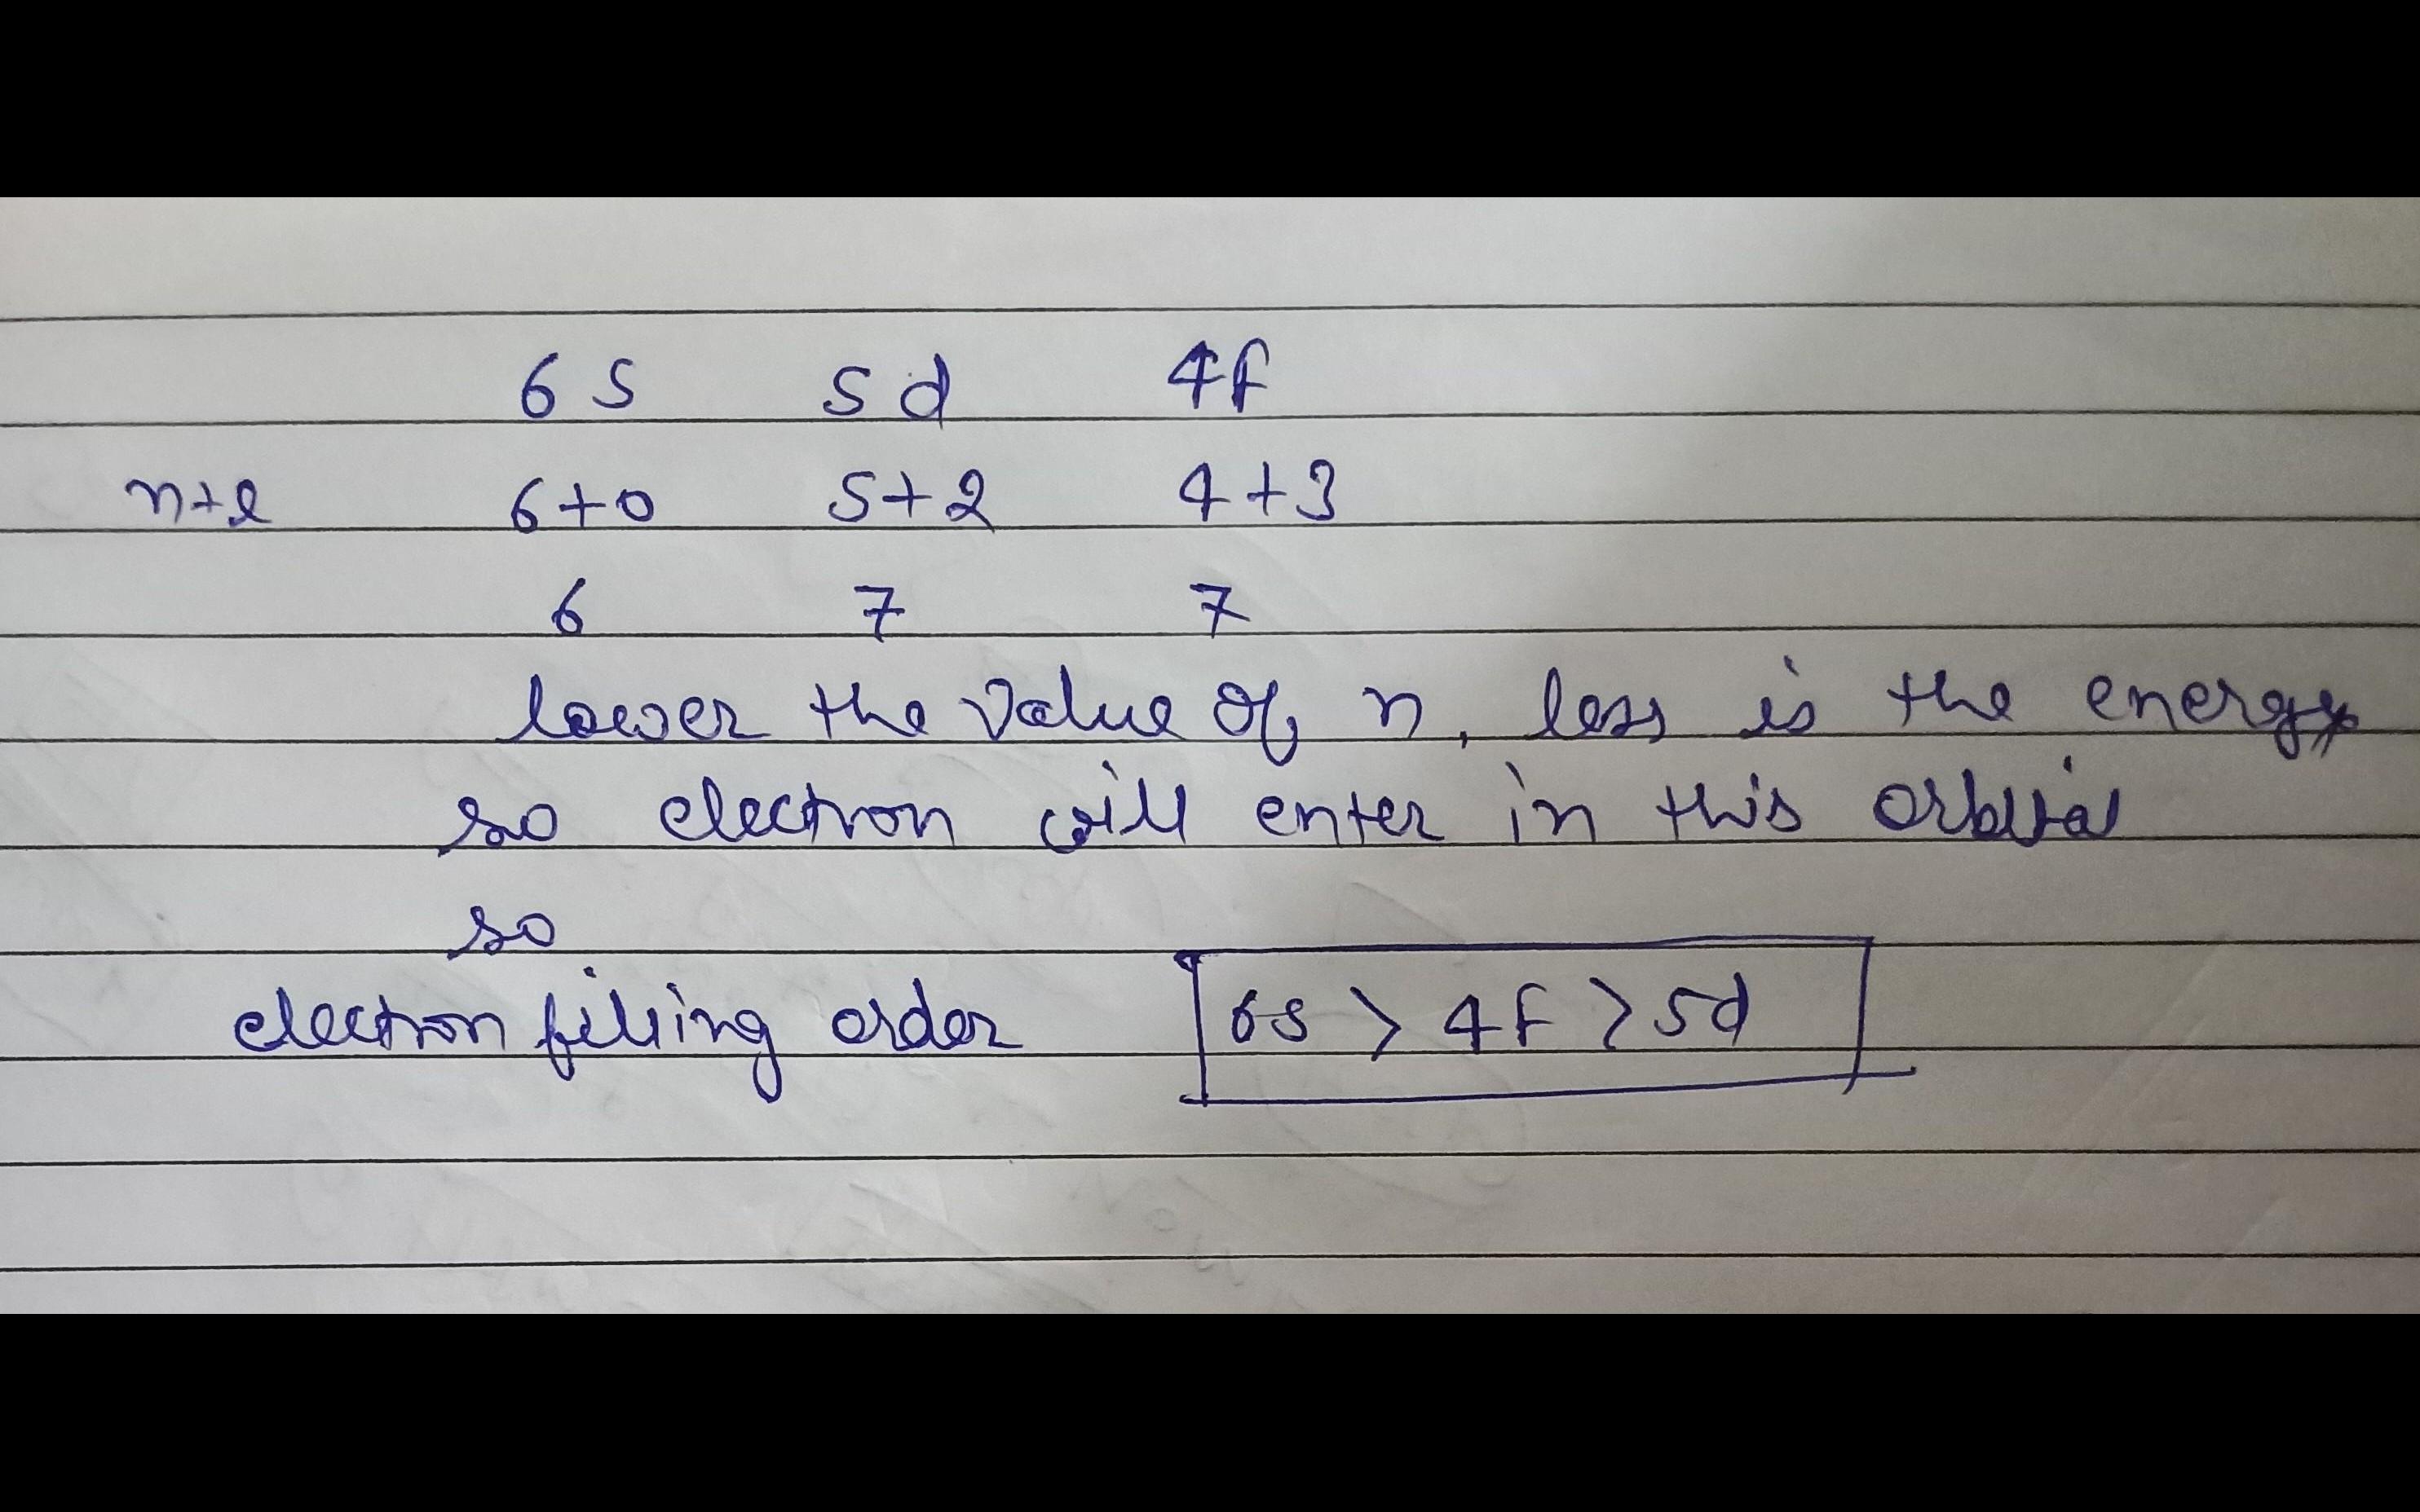 6s 5d 4f
n+l 6+0 5+2 4+3
6 7 7
lower the value of n, less is the energy
so electron will enter in this orbital
so
electron filling order 6s > 4f > 5d